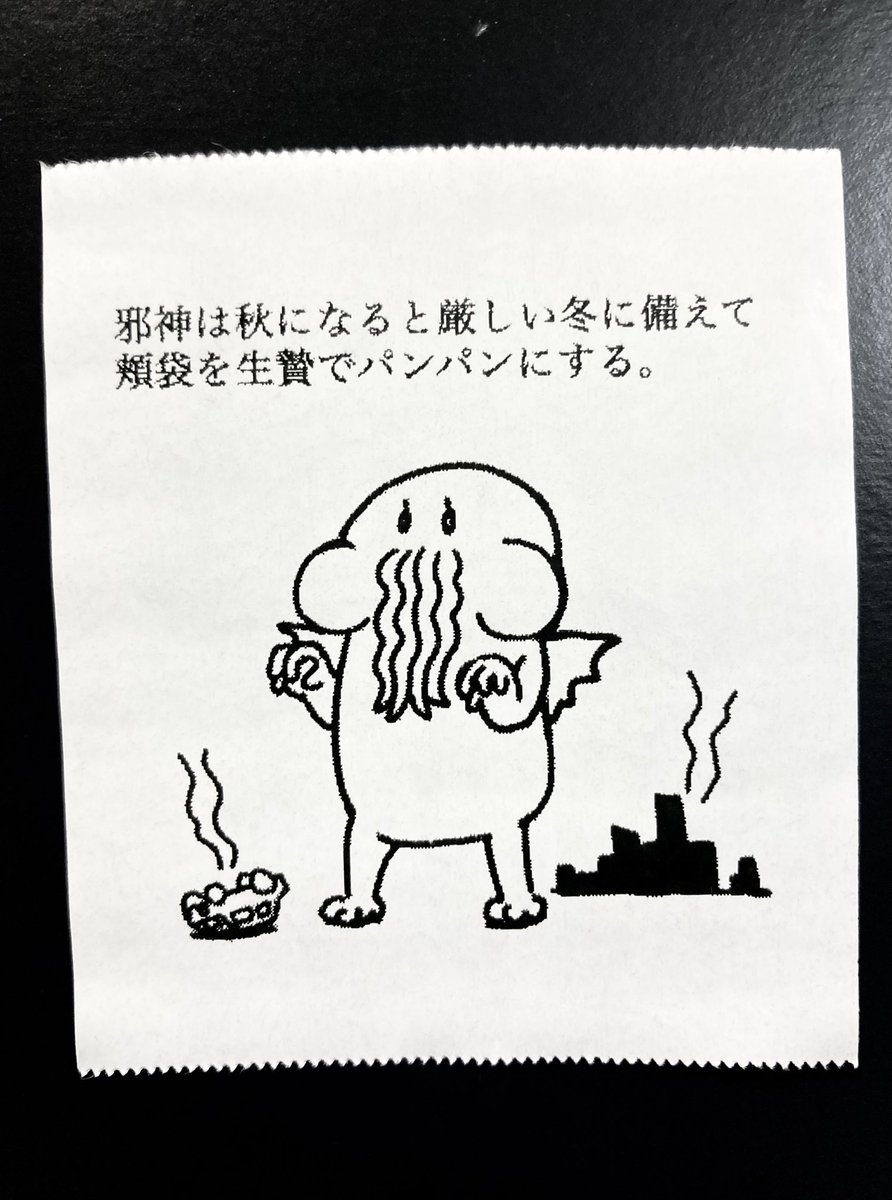 邪神は秋になると厳しい冬に備えて
頬袋を生贄でパンパンにする。